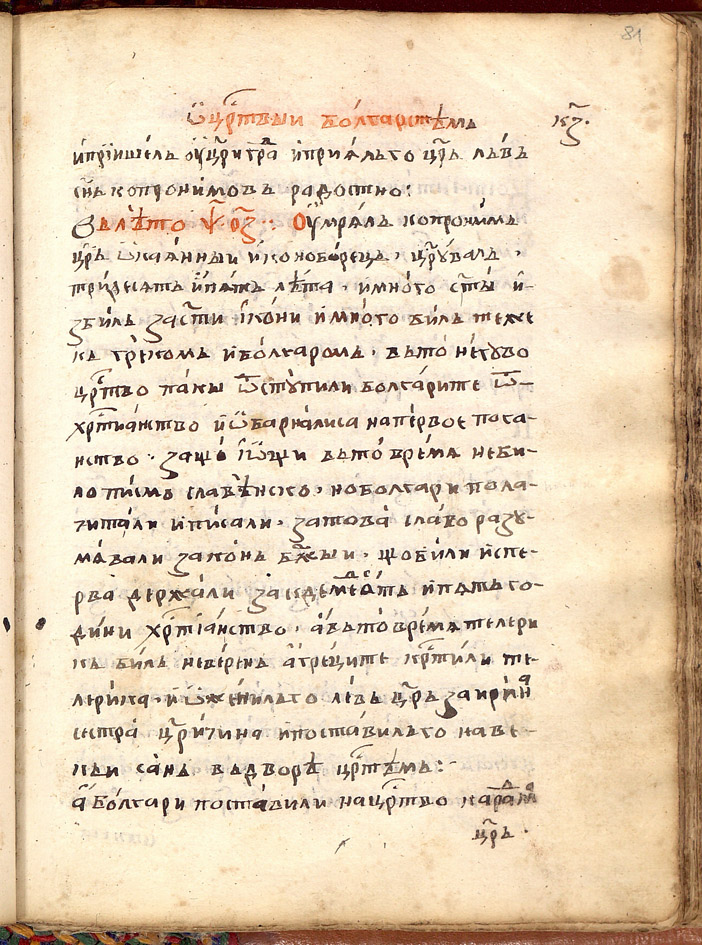 81
ѡ҆ цр҃твыи болгарстѣмъ кз҃.
и҆прїишелъ оу҆цр҃и гра и҆приѧ́лъ го цр҃ь лъвъ
сн҃ь копронимовъ радостно:
Въ лѣто ѱ҃ о҃з: Оу҆мрѧлъ копронимъ
цр҃ь ѡ҆каѧ́нныи и҆коноборецъ, цр҃увалъ,
тридесѧтъ и҆пѧтъ лѣта, имнѡ́го ст҃ы и҆-
збилъ за ст҃и і҆ко́ни и҆мно́го билъ теже
къ грекомъ и҆болгаромъ. въто неѓуво
цр҃тво паки ѿстꙋпили болгарите ѿ-
хрⷭ҇тиа́нство и҆ѡ҆барналиса напервое пога-
нство. защо́ і҆ѡ҆щи въто врѣмѧ неби-
ло писмо славѣнско, но болгари пола
читали и҆писали, затова́ слабо разꙋ-
мѧвали законъ бж҃ыи, що били и҆спе-
рва держа́ли за седемдесѧтъ и҆пѧть го-
ди́ни хрⷭ҇тїа́нство. а҆въто врѣмѧ телери
къ билъ неверенъ а҆ греците крⷭ҇тили те-
лерика, и҆ ѡ҆женилъ го левъ цр҃ь за ирин
сестра цр҃ичина и҆поставилъ го на ве-
къи санъ въдворѣ цр҃тѣмъ:
а҆ Болгари поставили на цр҃тво кардама
цр҃ь.